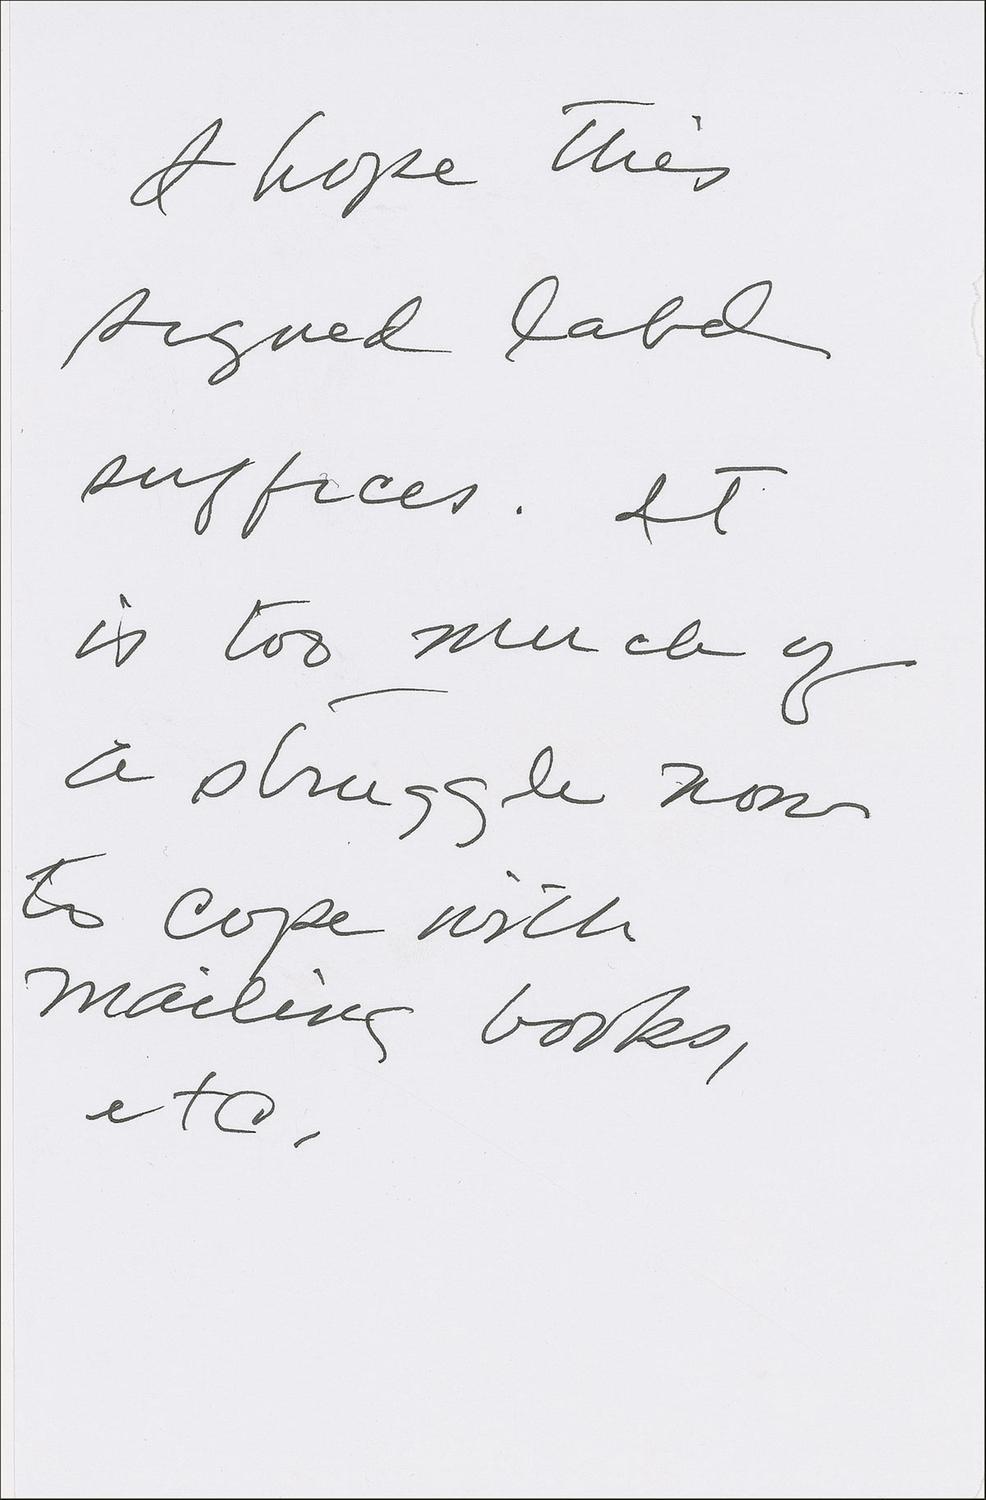 I hope this
signed label
suffices. It
is too much of
a struggle now
to cope with
mailing books,
etc.